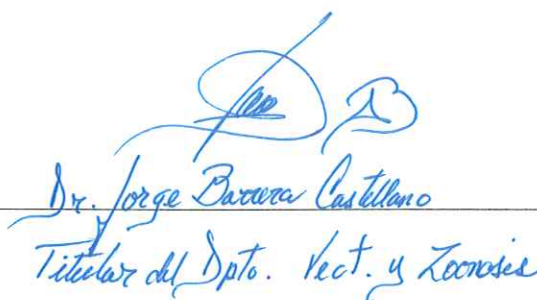 Dr. Jorge Barrera Castellano
Titular del Dpto. Vect. y Zoonosis